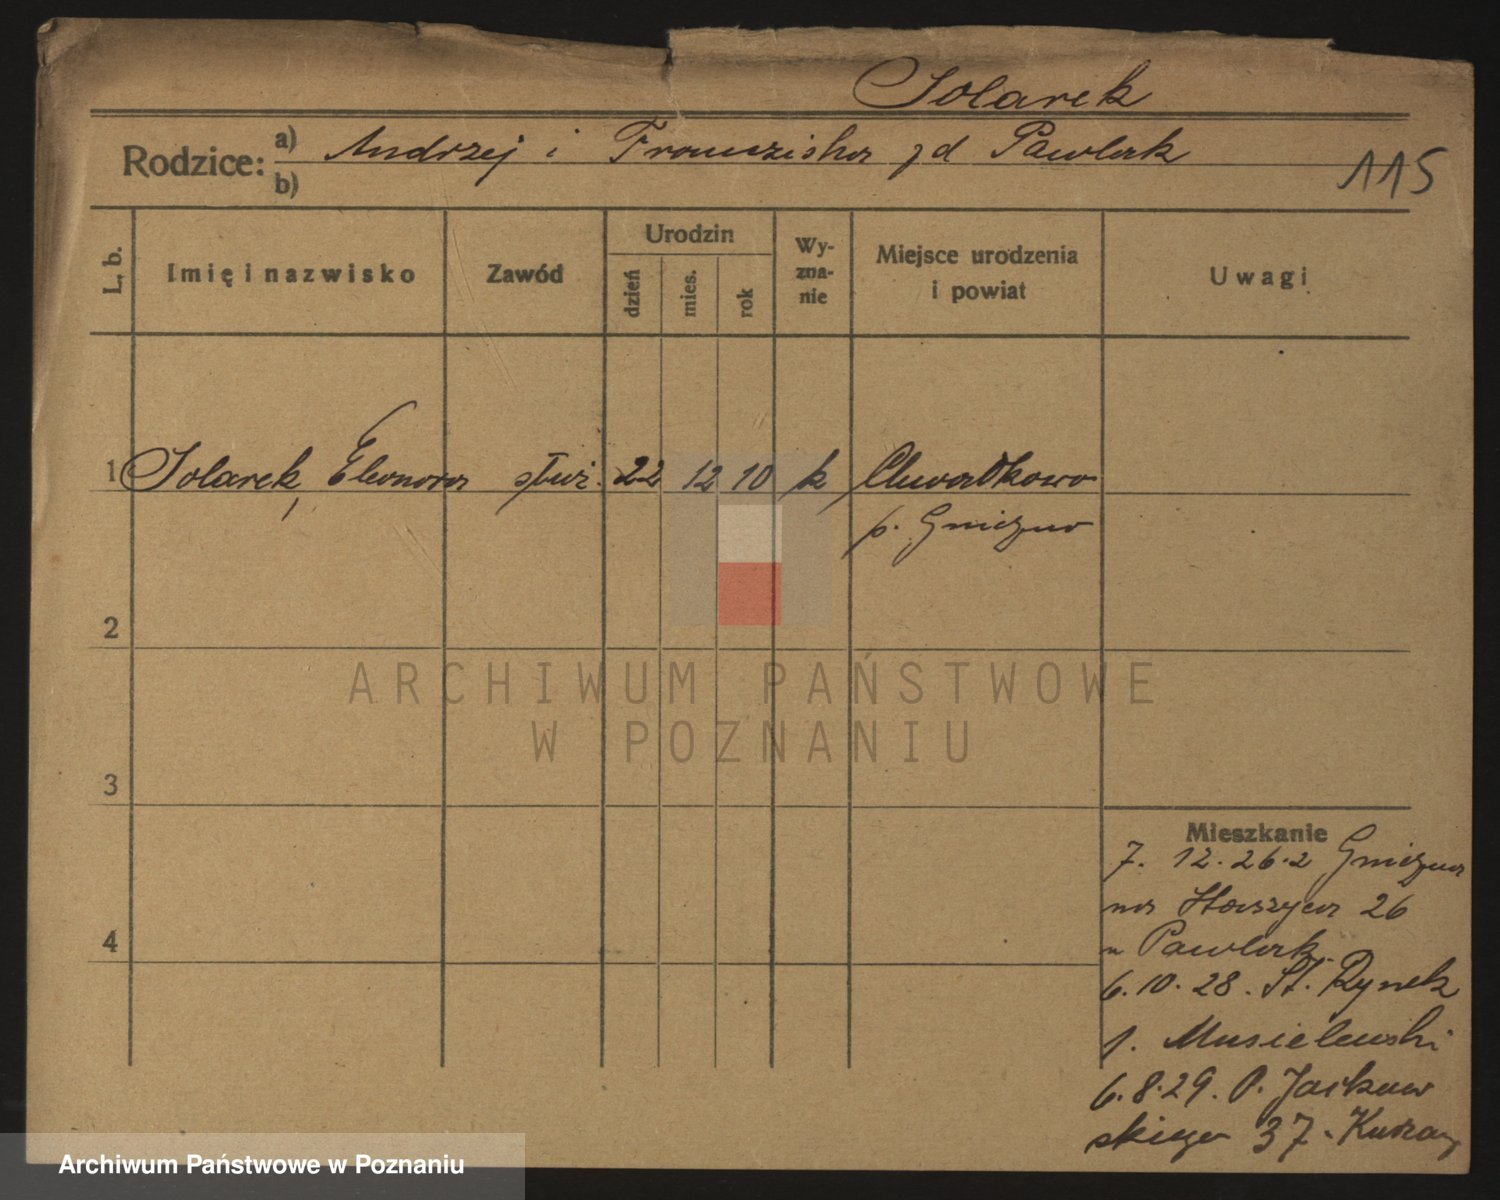 Solarek
Rodzice: a) Andrzej i Franciszka zd Pawlak
b)
115
L. b. Imię i nazwisko Zawód Urodzin dzień mies. rok Wy-zna-nie Miejsce urodzenia i powiat Uwagi
1 Solarek, Eleonora służ. 22 12 10 k Chwałkowo
p. Gniezno
2
3
4
Mieszkanie
7. 12. 26. z Gniezna
na Staszyca 26
u Pawlak.
6. 10. 28. St. Rynek
1. Musielewski
6. 8. 29. P. Jackow
skiego 37.
ARCHIWUM PAŃSTWOWE
W POZNANIU
Archiwum Państwowe w Poznaniu